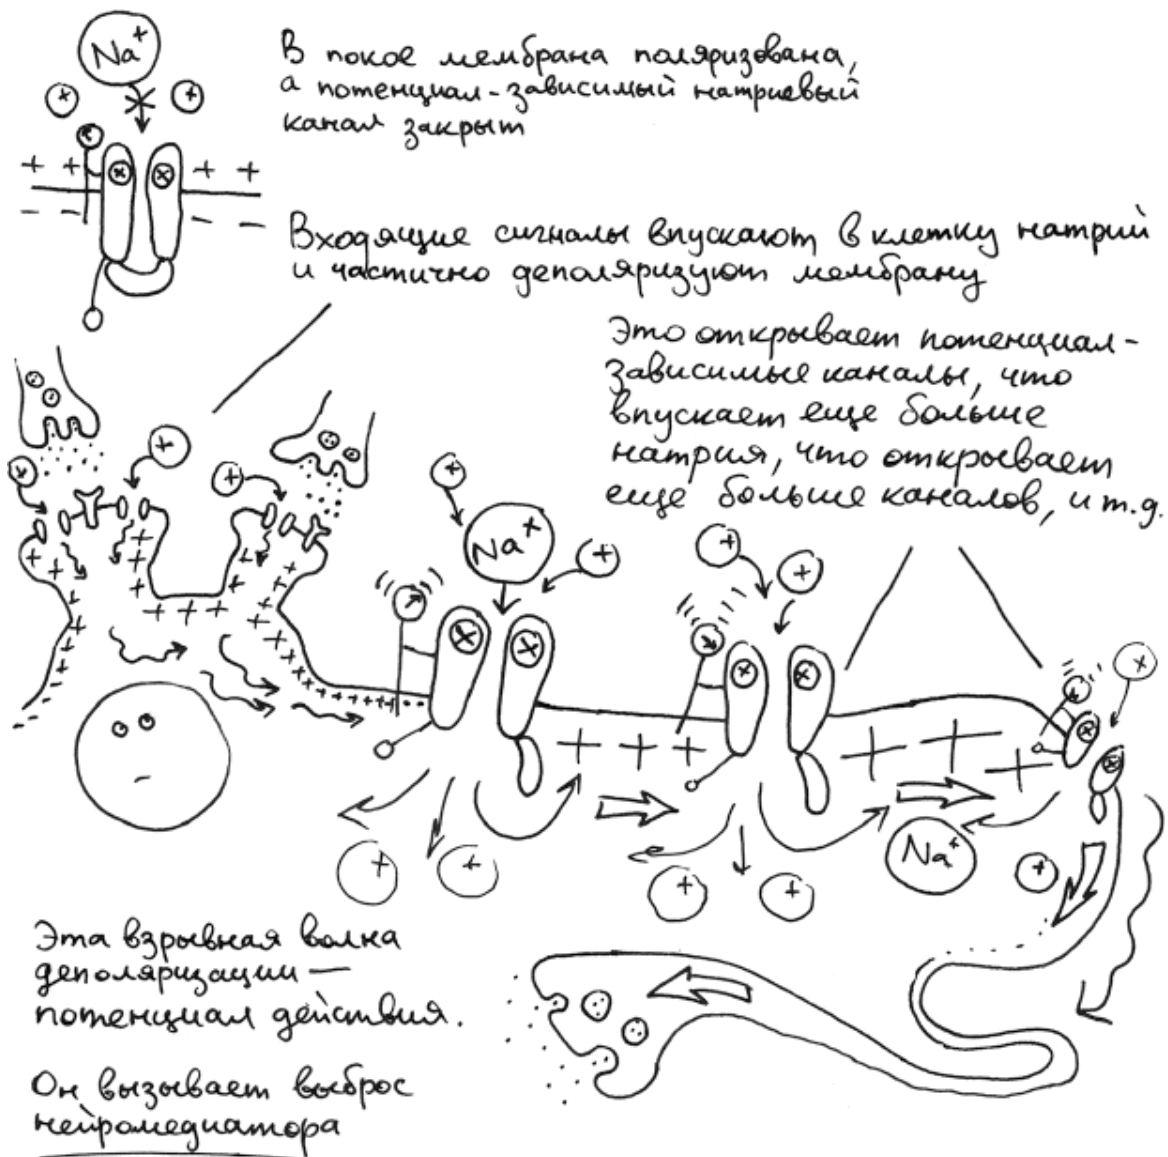 Na⁺
В покое мембрана поляризована,
а потенциал-зависимый натриевый
канал закрыт
Входящие сигналы впускают в клетку натрий
и частично деполяризуют мембрану
Это открывает потенциал-
зависимые каналы, что
впускает еще больше
натрия, что открывает
еще больше каналов, и т.д.
Na⁺
Na⁺
Эта взрывная волна
деполяризации —
потенциал действия.
Он вызывает выброс
нейромедиатора